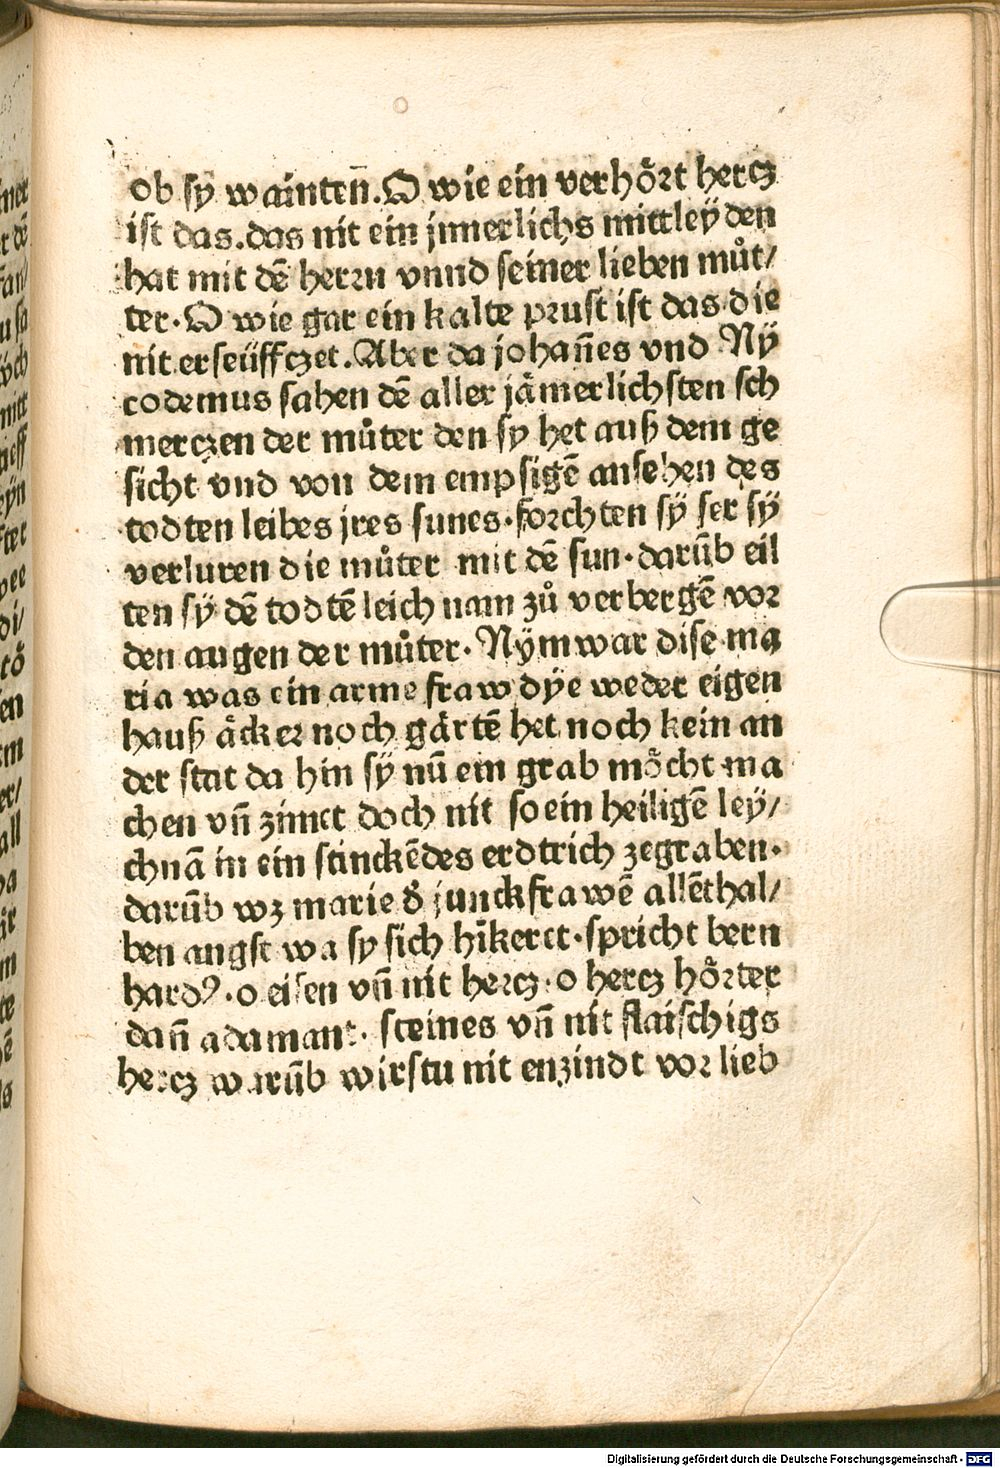 ob sy wainten̄. O wie ein verhört hercz
ist das. das nit ein jnnerlichs mittleyden
hat mit dē herrn vnnd seiner lieben můt/
ter. O wie gar ein kalte prust ist das die
nit erseüffczet. Aber da johan̄es vnd Nÿ
codemus sahen dē aller jämerlichsten sch
merczen der můter den sy het auß dem ge
sicht vnd von dem empsigē ansehen des
todten leibes jres sunes. forchten sÿ ser sÿ
verluren die můter mit dē sun. darūb eil
ten sÿ dē todtē leichnam zů verbergē vor
den augen der můter. Nÿm war dise ma
ria was ein arme fraw dÿe weder eigen
hauß äcker noch gärtē het noch kein an
der stat da hin sÿ nū ein grab möcht ma
chen vn̄ zimct doch nit so ein heiligē leÿ/
chnā in ein stinckēdes erdtrich zegraben.
darūb wz marie d̕ junckfrawē allēthal/
ben angst wa sy sich hīkeret. spricht bern
hardꝰ. o eisen vn̄ nit hercz. o hercz hörter
dan̄ adamant. steines vn̄ nit flaischigs
hercz warūb wirstu nit enzindt vor lieb
Digitalisierung gefördert durch die Deutsche Forschungsgemeinschaft - DFG